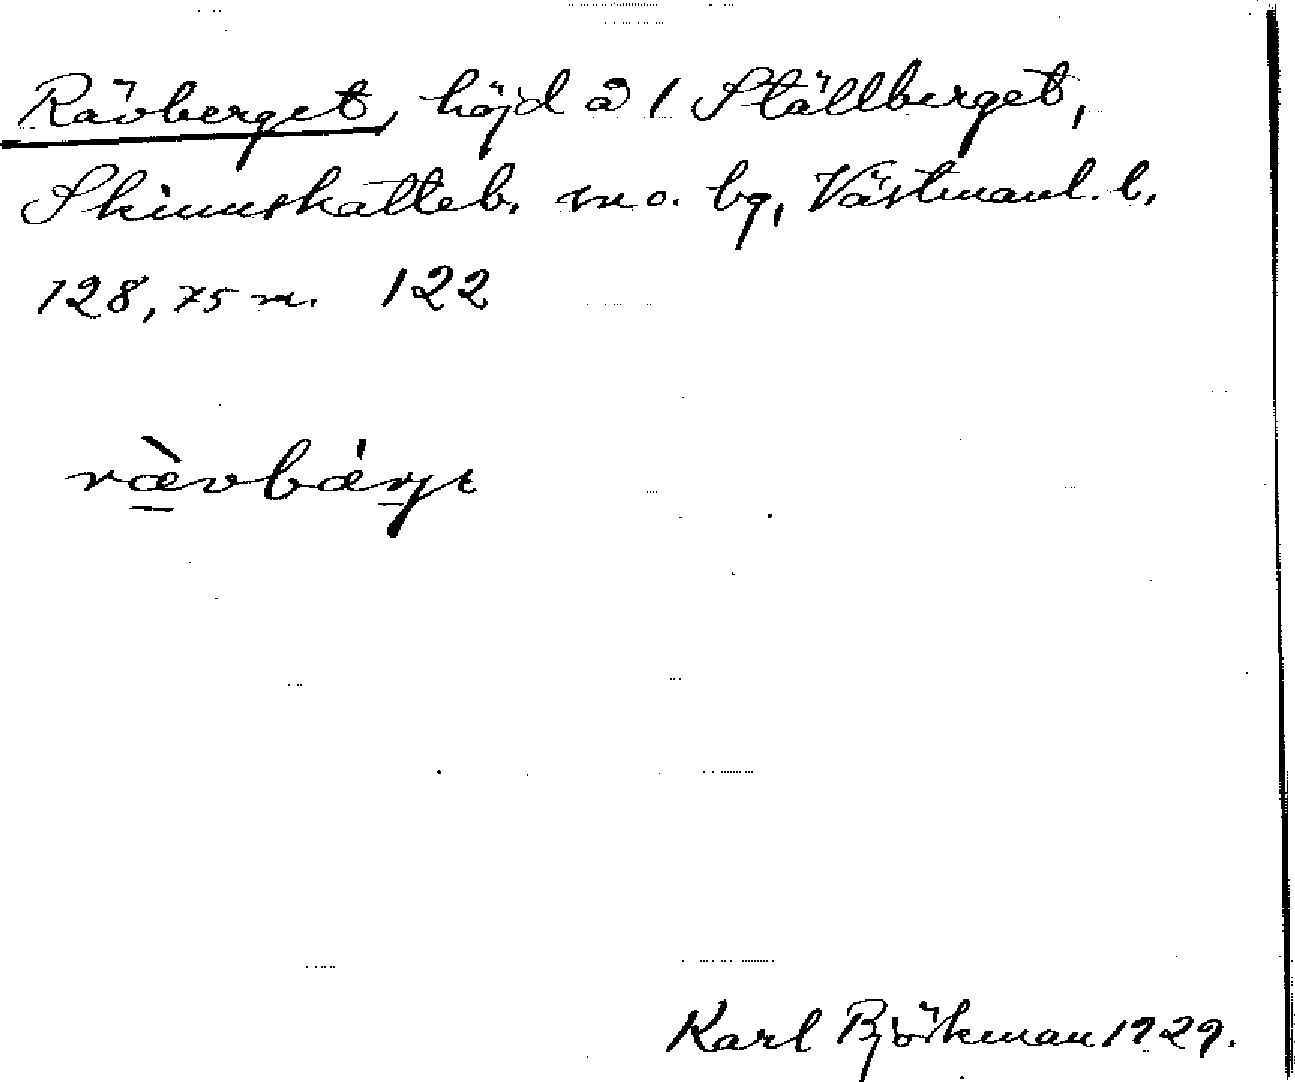 Rävberget, höjd å 1 Ställberget,
Skinnskatteb. so. bg, Västmanl. l.
128,75 m. 122
ræ̀vbǽrjt
Karl Björkman 1929.